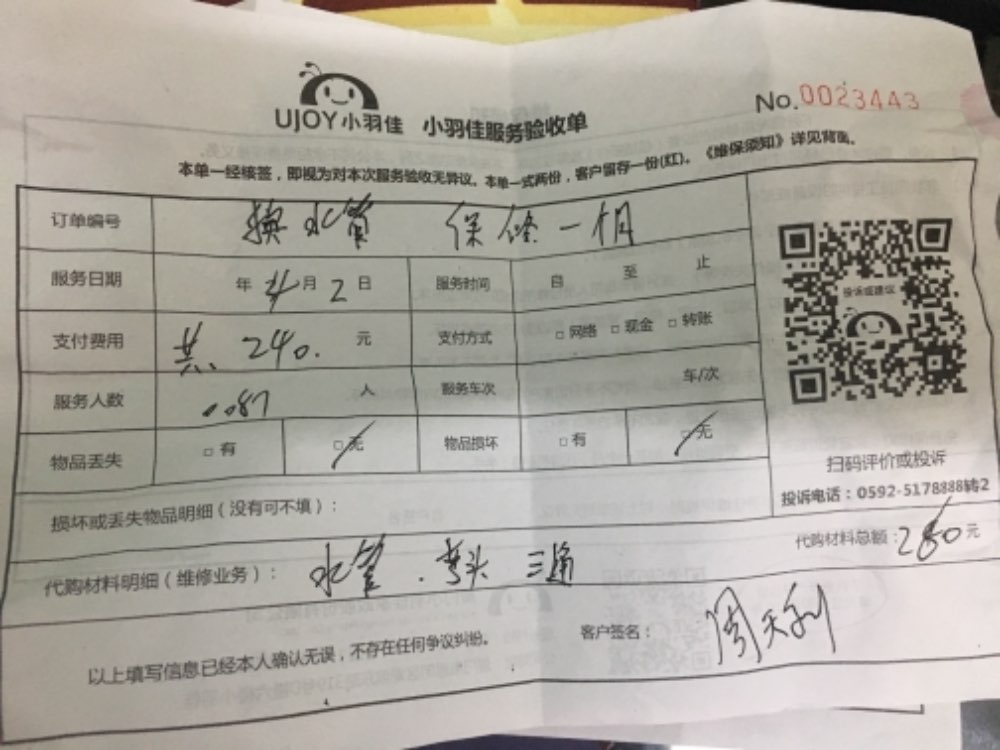 UJOY小羽佳 小羽佳服务验收单
No.0023443
本单一经核签，即视为对本次服务验收无异议。本单一式两份，客户留存一份(红)。《维保须知》详见背面。
订单编号 换水管 保修一个月
服务日期 年 4月 2日 服务时间 自 至 止
投诉或建议
支付费用 共、240. 元 支付方式 □网络 □现金 □转账
服务人数 人 服务车次 车/次
物品丢失 □有 □无 物品损坏 □有 □无
扫码评价或投诉
投诉电话：0592-5178888转2
损坏或丢失物品明细（没有可不填）：
代购材料明细（维修业务）： 水管.弯头 三通 代购材料总额： 元
以上填写信息已经本人确认无误，不存在任何争议纠纷。 客户签名： 周天利